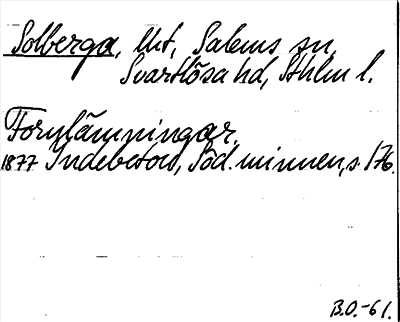 Solberga, Utt, Salems sn,
Svartlösa hd, Sthlm l.
Fornlämningar.
1877 Indebetou, Söd. minnen, s. 176.
B.O.-61.